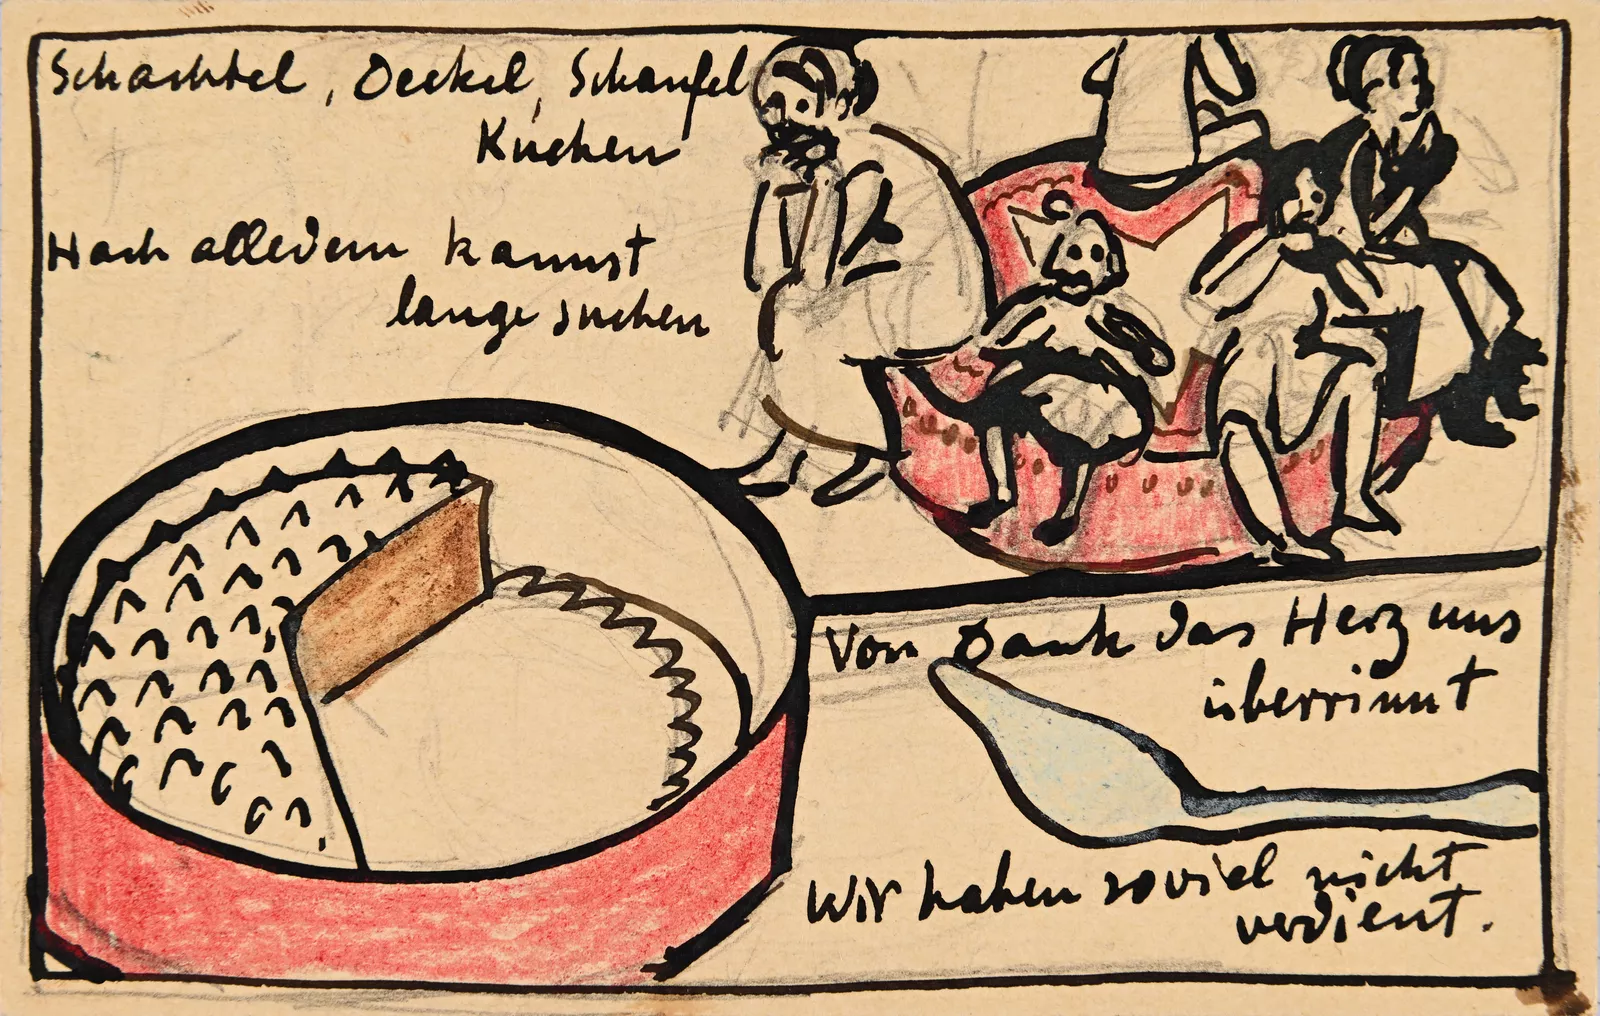 Schachtel, Deckel, Schaufel
Kuchen
Nach alledem kannst
lange suchen
Von Dank das Herz uns
überrinnt
Wir haben soviel nicht
verdient.